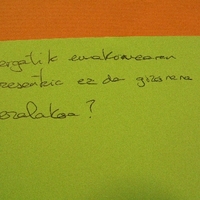 ergatik emakumearen
resentzia ez da gizonena
ezalakoa?